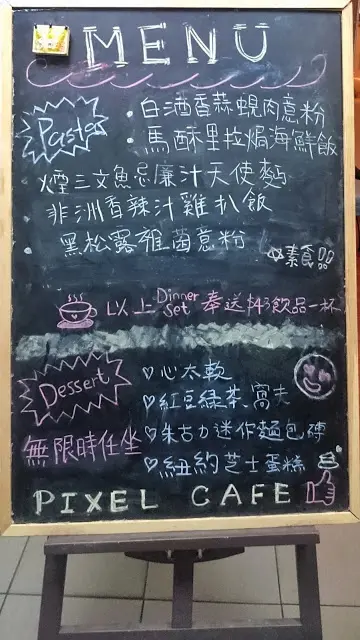 MENU
Pasta
· 白酒香蒜蜆肉意粉
· 馬酥里拉焗海鮮飯
煙三文魚忌廉汁天使麵
非洲香辣汁雞扒飯
黑松露雜菌意粉 ☆素食!!
以上 Dinner Set 奉送 $43飲品一杯
Dessert
♡心太軟
♡紅豆綠茶窩夫
♡朱古力迷你麵包磚
♡紐約芝士蛋糕
無限時任坐
PIXEL CAFE